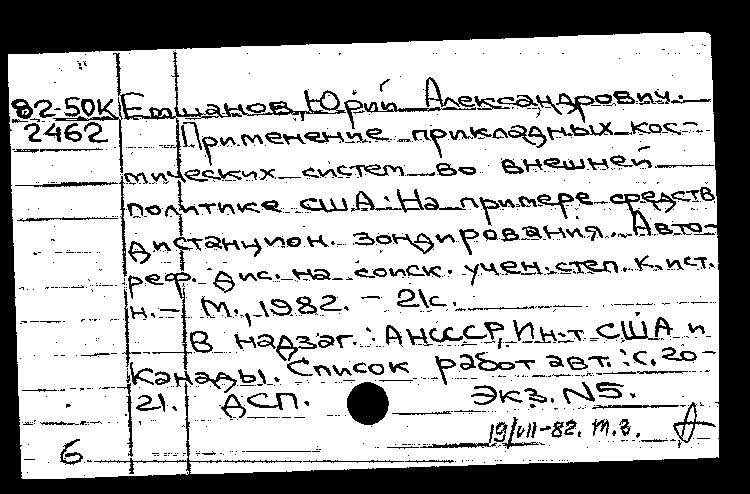 82-50К Емшанов, Юрий Александрович.
2462 Применение прикладных кос-
мических систем во внешней
политике США: На примере средств
дистанцион. зондирования. Авто-
реф. дис. на соиск. учен. степ. к. ист.
н. - М., 1982. - 21с.
В надзаг.: АНСССР, Ин-т США и
Канады. Список работ авт.: с. 20-
21. ДСП. Экз. N5.
19/VII-82. т.з.
6